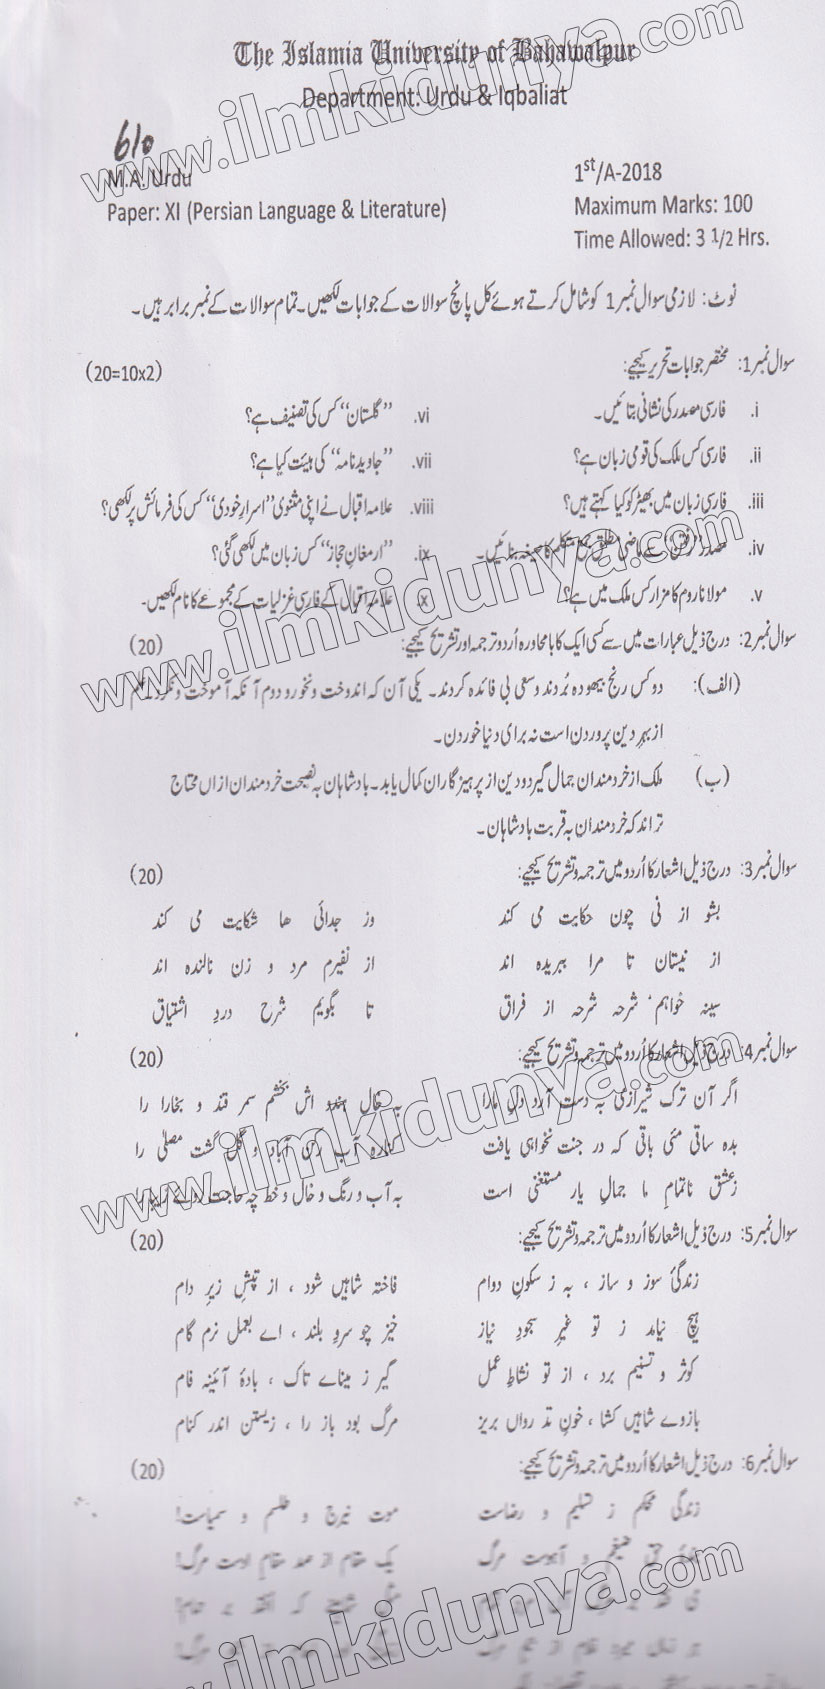 The Islamia University of Bahawalpur
Department: Urdu & Iqbaliat
610
M.A. Urdu
1st/A-2018
Paper: XI (Persian Language & Literature)
Maximum Marks: 100
Time Allowed: 3 1/2 Hrs.
نوٹ: لازمی سوال نمبر 1 کو شامل کرتے ہوئے کل پانچ سوالات کے جوابات لکھیں۔ تمام سوالات کے نمبر برابر ہیں۔
سوال نمبر 1: مختصر جوابات تحریر کیجیے: (20=10x2)
i. فارسی مصدر کی نشانی بتائیں۔
vi. "گلستان" کس کی تصنیف ہے؟
ii. فارسی کس ملک کی قومی زبان ہے؟
vii. "جاوید نامہ" کی ہیئت کیا ہے؟
iii. فارسی زبان میں بھیڑ کو کیا کہتے ہیں؟
viii. علامہ اقبال نے اپنی مثنوی "اسرارِ خودی" کس کی فرمائش پر لکھی؟
iv. مصدر "رفتن" سے ماضی مطلق جمع متکلم کا صیغہ بتائیں۔
ix. "ارمغانِ حجاز" کس زبان میں لکھی گئی؟
v. مولانا روم کا مزار کس ملک میں ہے؟
x. علامہ اقبال کے فارسی غزلیات کے مجموعے کا نام لکھیں۔
سوال نمبر 2: درج ذیل عبارات میں سے کسی ایک کا با محاورہ اُردو ترجمہ اور تشریح کیجیے: (20)
(الف): دو کس رنج بیہودہ بُردند و سعی بی فائدہ کردند۔ یکی آن کہ اندوخت و نخورد و دوم آنکہ آموخت و نکرد۔ علم
از بہرِ دین پروردن است نہ برای دنیا خوردن۔
(ب) ملک از خردمندان جمال گیرد و دین از پرہیزگاران کمال یابد۔ بادشاہان بہ نصیحت خردمندان ازاں محتاج
تر اند کہ خردمندان بہ قربت بادشاہان۔
سوال نمبر 3: درج ذیل اشعار کا اُردو میں ترجمہ و تشریح کیجیے: (20)
بشو از نی چون حکایت می کند وز جدائی ھا شکایت می کند
از نیستان تا مرا ببریدہ اند از نفیرم مرد و زن نالندہ اند
سینہ خواہم شرحہ شرحہ از فراق تا بگویم شرح دردِ اشتیاق
سوال نمبر 4: درج ذیل اشعار کا اُردو میں ترجمہ و تشریح کیجیے: (20)
اگر آن ترک شیرازی بہ دست آرد دلِ مارا بہ خالِ ہندو اش بخشم سمرقند و بخارا را
بدہ ساقی مئی باقی کہ در جنت نخواہی یافت کنارہ آب رکن آباد و گل گشت مصلیٰ را
زعشق ناتمامِ ما جمالِ یار مستغنی است بہ آب و رنگ و خال و خط چہ حاجت روئے زیبا را
سوال نمبر 5: درج ذیل اشعار کا اُردو میں ترجمہ و تشریح کیجیے: (20)
زندگیٔ سوز و ساز ، بہ ز سکونِ دوام فاختہ شاہیں شود ، از تپشِ زیرِ دام
ہیچ نیاید ز تو غیرِ سجودِ نیاز خیز چو سروِ بلند ، اے بعمل نرم گام
کوثر و تسنیم برد ، از تو نشاطِ عمل گیر ز میناے تاک ، بادۂ آئینہ فام
بازوے شاہیں کشا ، خونِ تدرواں بریز مرگ بود باز را ، زیستن اندر کنام
سوال نمبر 6: درج ذیل اشعار کا اُردو میں ترجمہ و تشریح کیجیے: (20)
زندگی محکم ز تسلیم و رضاست موت نیرنج و طلسم و سیمیاست!
ضیغم و آہوست مرگ یک مقام از صد مقامِ اوست مرگ!
www.ilmkidunya.com
www.ilmkidunya.com
www.ilmkidunya.com
www.ilmkidunya.com